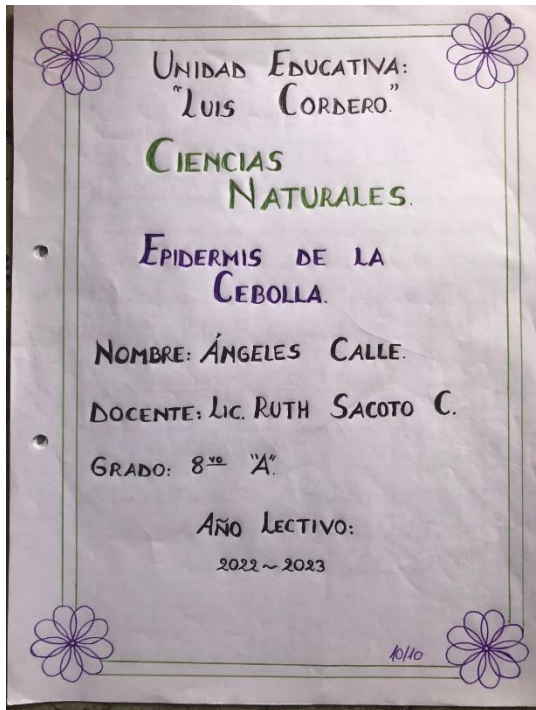 UNIDAD EDUCATIVA:
"LUIS CORDERO."
CIENCIAS
NATURALES.
EPIDERMIS DE LA
CEBOLLA.
NOMBRE: ÁNGELES CALLE.
DOCENTE: LIC. RUTH SACOTO C.
GRADO: 8vo "A".
AÑO LECTIVO:
2022~2023
10/10